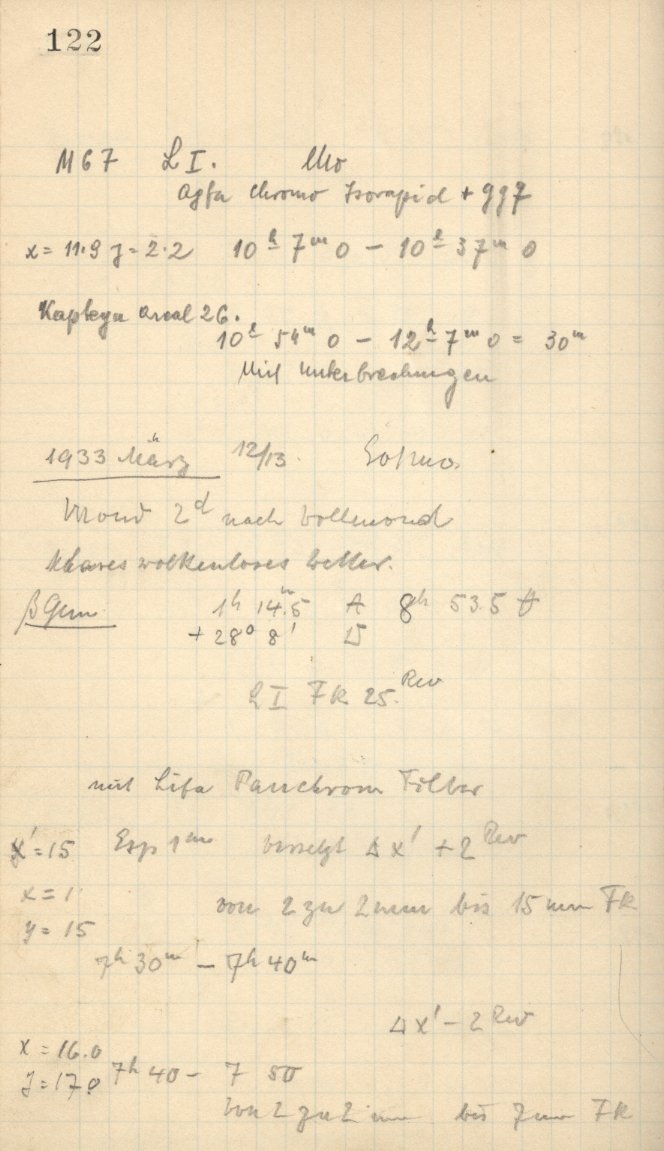 122
M67 L I.
Agfa Chromo Isorapid + gg7
x = 11.9 y = 2.2 10h 7m 0 – 10h 37m 0
Kapteyn Areal 26.
10h 54m 0 – 12h 7m 0 = 30m
Mit Unterbrechungen
1933 März 12/13.
Mond 2d nach Vollmond
klares wolkenloses Wetter.
β Gem 1h 14.m5 A 8h 53.5
+ 28° 8'
L I Fk 25. Rev
mit Lifa Panchrom Filter
x' = 15 Exp 1m versetzt Δ x' + 2 Rev
x = 1
von 2 zu 2 mm bis 15 mm Fk
y = 15
7h 30m – 7h 40m
Δ x' – 2 Rev
x = 16.0
7h 40 – 7 50
y = 17.0
von 2 zu 2 mm bis 7 mm Fk